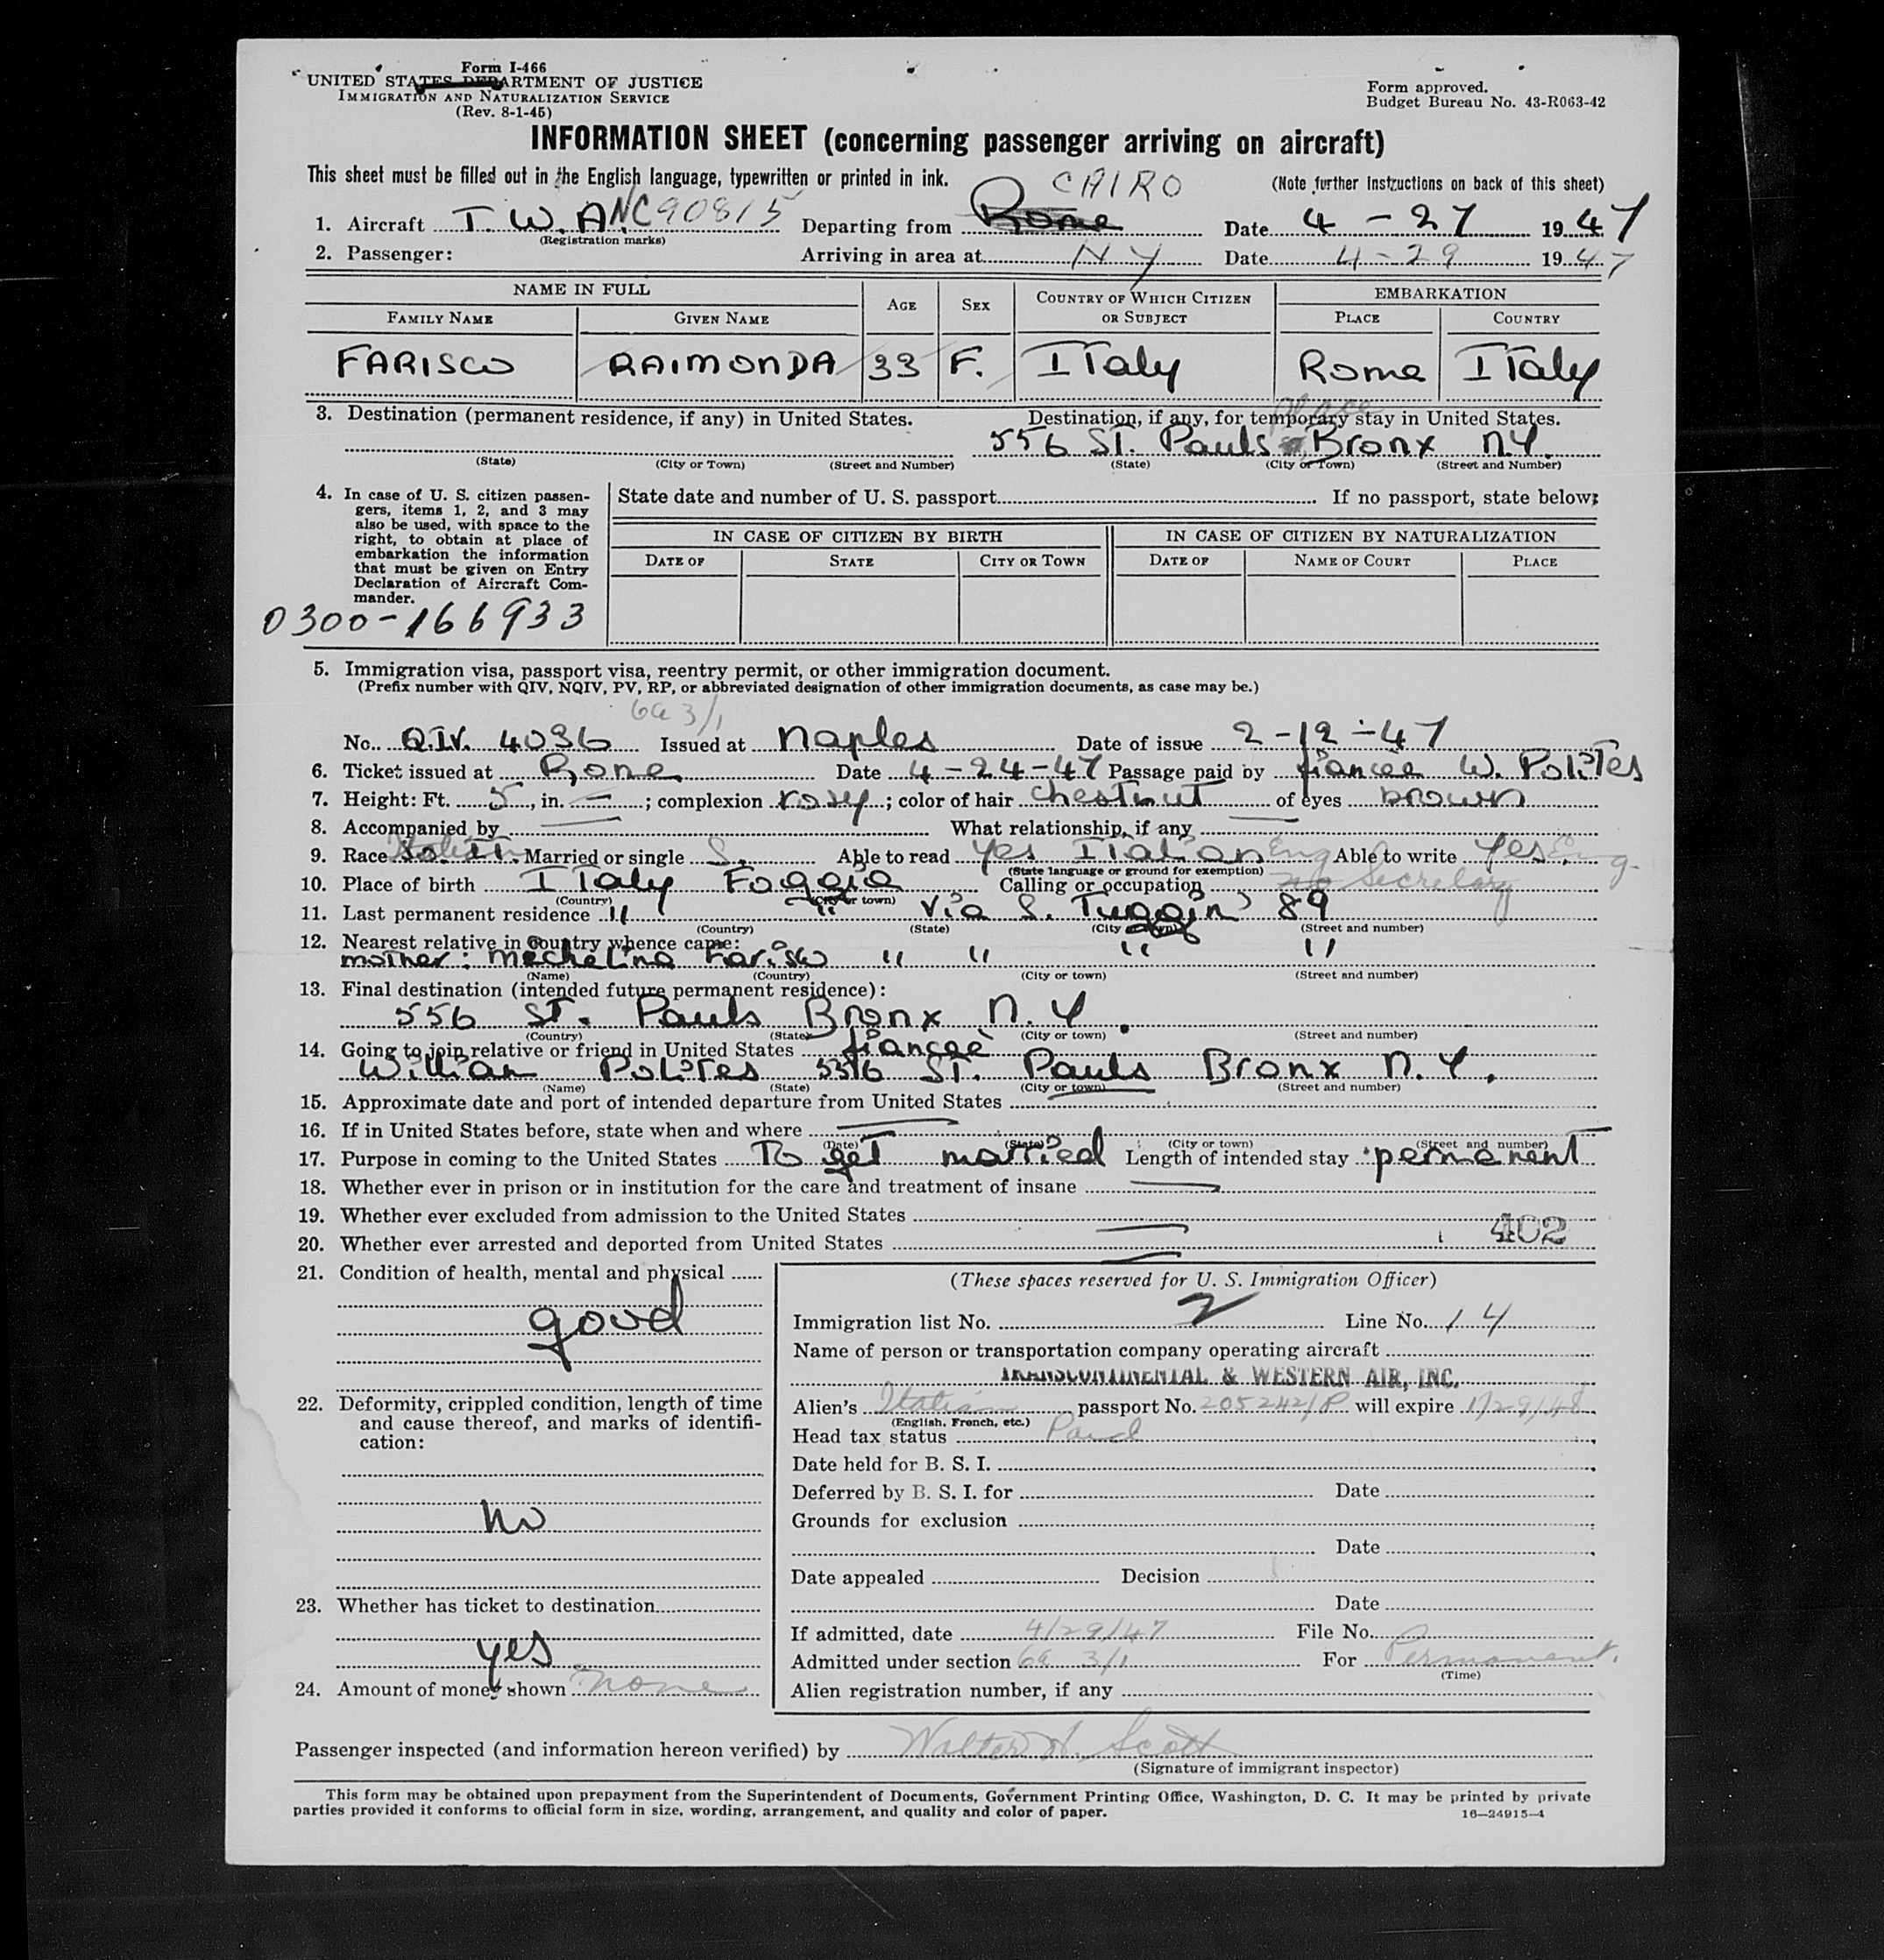 Form I-466
UNITED STATES DEPARTMENT OF JUSTICE
IMMIGRATION AND NATURALIZATION SERVICE
(Rev. 8-1-45)
Form approved.
Budget Bureau No. 43-R063-42
INFORMATION SHEET (concerning passenger arriving on aircraft)
This sheet must be filled out in the English language, typewritten or printed in ink.
(Note further instructions on back of this sheet)
CAIRO
1. Aircraft T.W.A. NC90815 Departing from Rome Date 4-27 1947
(Registration marks)
2. Passenger: Arriving in area at NY Date 4-29 1947
NAME IN FULL AGE SEX COUNTRY OF WHICH CITIZEN OR SUBJECT EMBARKATION
FAMILY NAME GIVEN NAME PLACE COUNTRY
FARISCO RAIMONDA 33 F. ITaly Rome ITaly
3. Destination (permanent residence, if any) in United States. Destination, if any, for temporary stay in United States.
place
556 ST. Pauls Bronx N.Y.
(State) (City or Town) (Street and Number) (State) (City or Town) (Street and Number)
4. In case of U. S. citizen passen-
gers, items 1, 2, and 3 may
also be used, with space to the
right, to obtain at place of
embarkation the information
that must be given on Entry
Declaration of Aircraft Com-
mander.
0300-166933
State date and number of U. S. passport If no passport, state below:
IN CASE OF CITIZEN BY BIRTH IN CASE OF CITIZEN BY NATURALIZATION
DATE OF STATE CITY OR TOWN DATE OF NAME OF COURT PLACE
5. Immigration visa, passport visa, reentry permit, or other immigration document.
(Prefix number with QIV, NQIV, PV, RP, or abbreviated designation of other immigration documents, as case may be.)
6a 3/1
No. Q.IV. 4036 Issued at Naples Date of issue 2-12-47
6. Ticket issued at Rome Date 4-24-47 Passage paid by fiancee W. PoliTes
7. Height: Ft. 5, in. — ; complexion rosy ; color of hair chestnut of eyes brown
8. Accompanied by — What relationship, if any —
9. Race Italian So. It. Married or single S. Able to read yes ITalian Eng Able to write yes Eng.
(State language or ground for exemption)
10. Place of birth ITaly Foggia Calling or occupation no Secretary
(Country) (City or town)
11. Last permanent residence " " Via S. 89
(Country) (State) (City or town) (Street and number)
12. Nearest relative in country whence came:
mother: Mechelina Farisco " " " "
(Name) (Country) (City or town) (Street and number)
13. Final destination (intended future permanent residence):
556 ST. Pauls Bronx N.Y.
(Country) (State) (City or town) (Street and number)
14. Going to join relative or friend in United States fiancee
William PoliTes 556 ST. Pauls Bronx N.Y.
(Name) (State) (City or town) (Street and number)
15. Approximate date and port of intended departure from United States —
16. If in United States before, state when and where —
(Date) (State) (City or town) (Street and number)
17. Purpose in coming to the United States To get married Length of intended stay permanent
18. Whether ever in prison or in institution for the care and treatment of insane —
19. Whether ever excluded from admission to the United States —
402
20. Whether ever arrested and deported from United States —
21. Condition of health, mental and physical
good
22. Deformity, crippled condition, length of time
and cause thereof, and marks of identifi-
cation:
no
23. Whether has ticket to destination
yes
24. Amount of money shown none
(These spaces reserved for U. S. Immigration Officer)
Immigration list No. 2 Line No. 14
Name of person or transportation company operating aircraft
TRANSCONTINENTAL & WESTERN AIR, INC.
Alien's Italian passport No. 205242/P will expire 1/29/48
(English, French, etc.)
Head tax status Paid
Date held for B. S. I.
Deferred by B. S. I. for Date
Grounds for exclusion
Date
Date appealed Decision
Date
If admitted, date 4/29/47 File No.
Admitted under section 6a 3/1 For Permanent.
(Time)
Alien registration number, if any
Passenger inspected (and information hereon verified) by Walter H. Scott
(Signature of immigrant inspector)
This form may be obtained upon prepayment from the Superintendent of Documents, Government Printing Office, Washington, D. C. It may be printed by private
parties provided it conforms to official form in size, wording, arrangement, and quality and color of paper.
16—24915-4